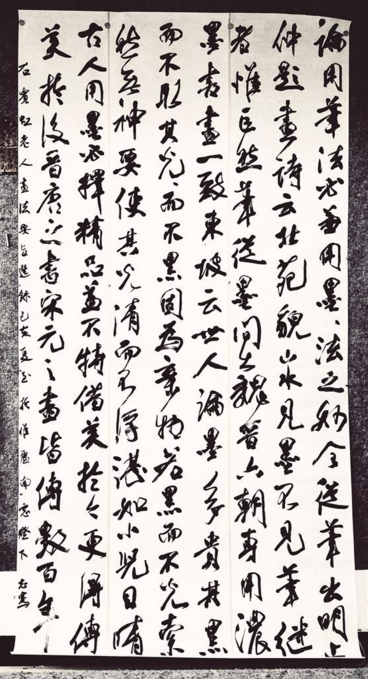 論用筆法必兼用墨々法之妙全從筆出明止
仲題畫詩云北苑貌山水見墨不見筆繼
者惟巨然筆從墨間出魏晉六朝專用濃
墨書畫一致東坡云世人論墨多貴其黑
而不取其光々而不黑固為棄物若黑而不光索
然無神要使其光清而不浮湛如小兒目睛
古人用墨必擇精品蓋不特借美於今更得傳
美於後晉唐之書宋元之畫皆傳數百年
右賓虹老人畫法要旨選錄乙亥夏至於淮南窗燈下